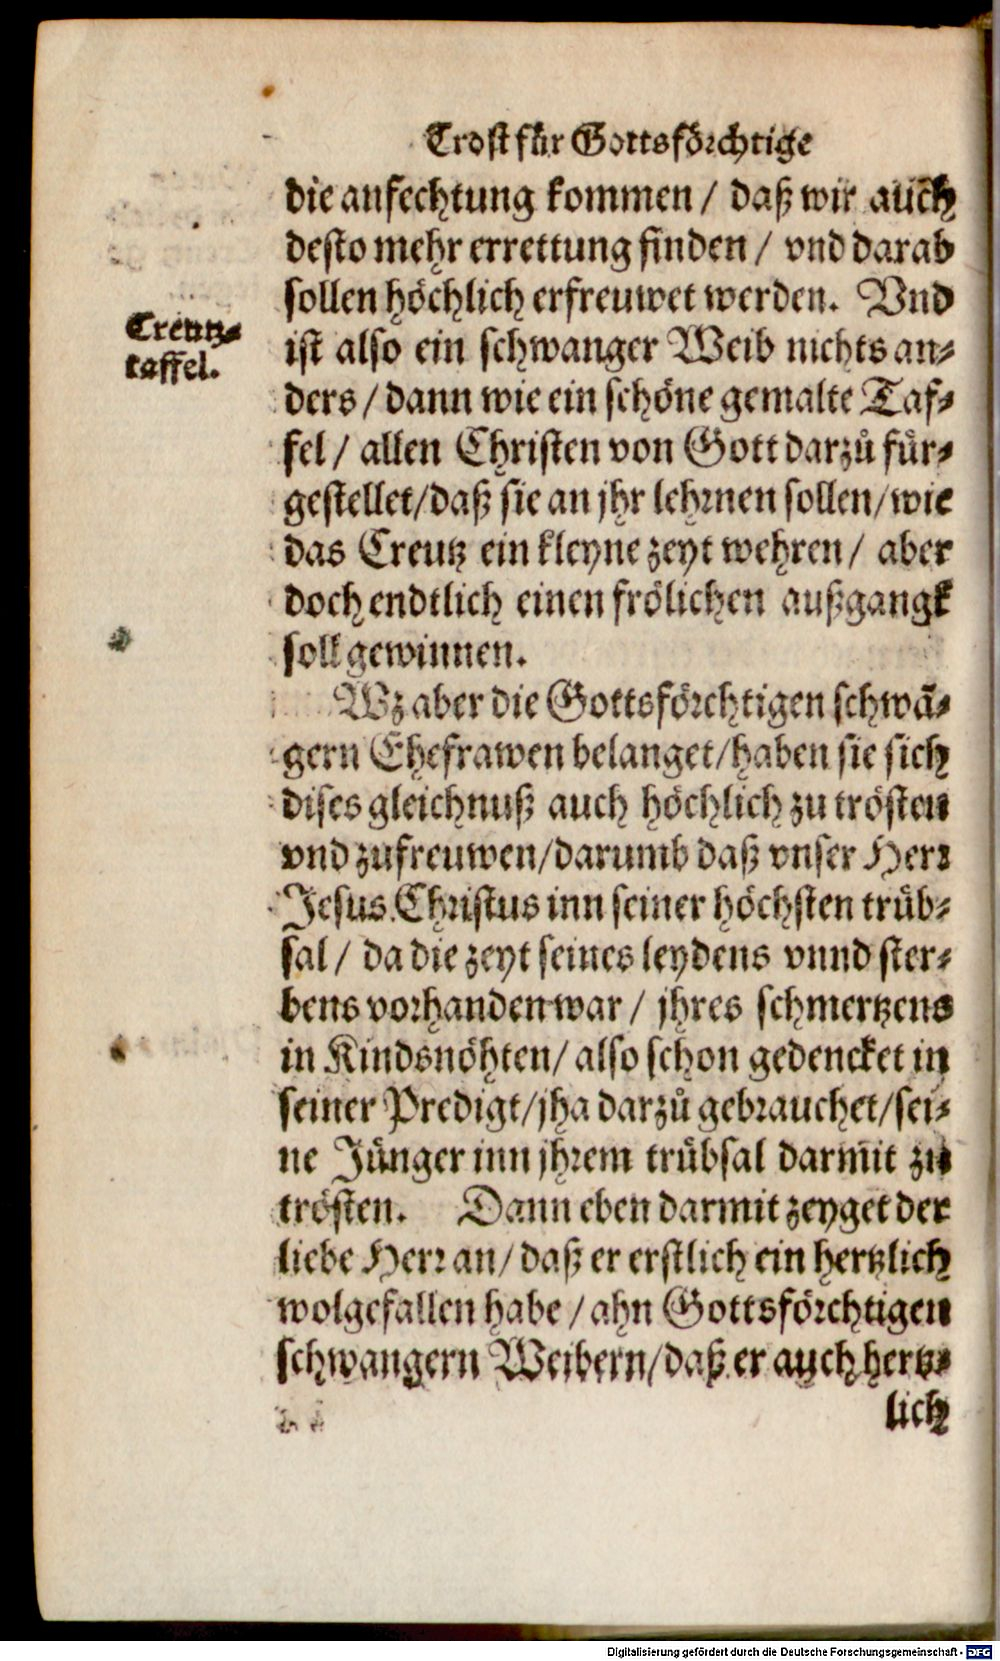 Trost für Gottsförchtige
die anfechtung kommen / daß wir auch
desto mehr errettung finden / vnd darab
sollen höchlich erfreuwet werden. Vnd
Creutz-
taffel.
ist also ein schwanger Weib nichts an-
ders / dann wie ein schöne gemalte Taf-
fel / allen Christen von Gott darzů für-
gestellet / daß sie an jhr lehrnen sollen / wie
das Creutz ein kleyne zeyt wehren / aber
doch endtlich einen frölichen außgangk
soll gewinnen.
Wz aber die Gottsförchtigen schwã-
gern Ehefrawen belanget / haben sie sich
dises gleichnuß auch höchlich zu trösten
vnd zufreuwen / darumb daß vnser Herr
Jesus Christus inn seiner höchsten trüb-
sal / da die zeyt seines leydens vnnd ster-
bens vorhanden war / jhres schmertzens
in Kindsnöhten / also schon gedencket in
seiner Predigt / jha darzů gebrauchet / sei-
ne Jünger inn jhrem trübsal darmit zu
trösten. Dann eben darmit zeyget der
liebe Herr an / daß er erstlich ein hertzlich
wolgefallen habe / ahn Gottsförchtigen
schwangern Weibern / daß er auch hertz-
lich
Digitalisierung gefördert durch die Deutsche Forschungsgemeinschaft - DFG